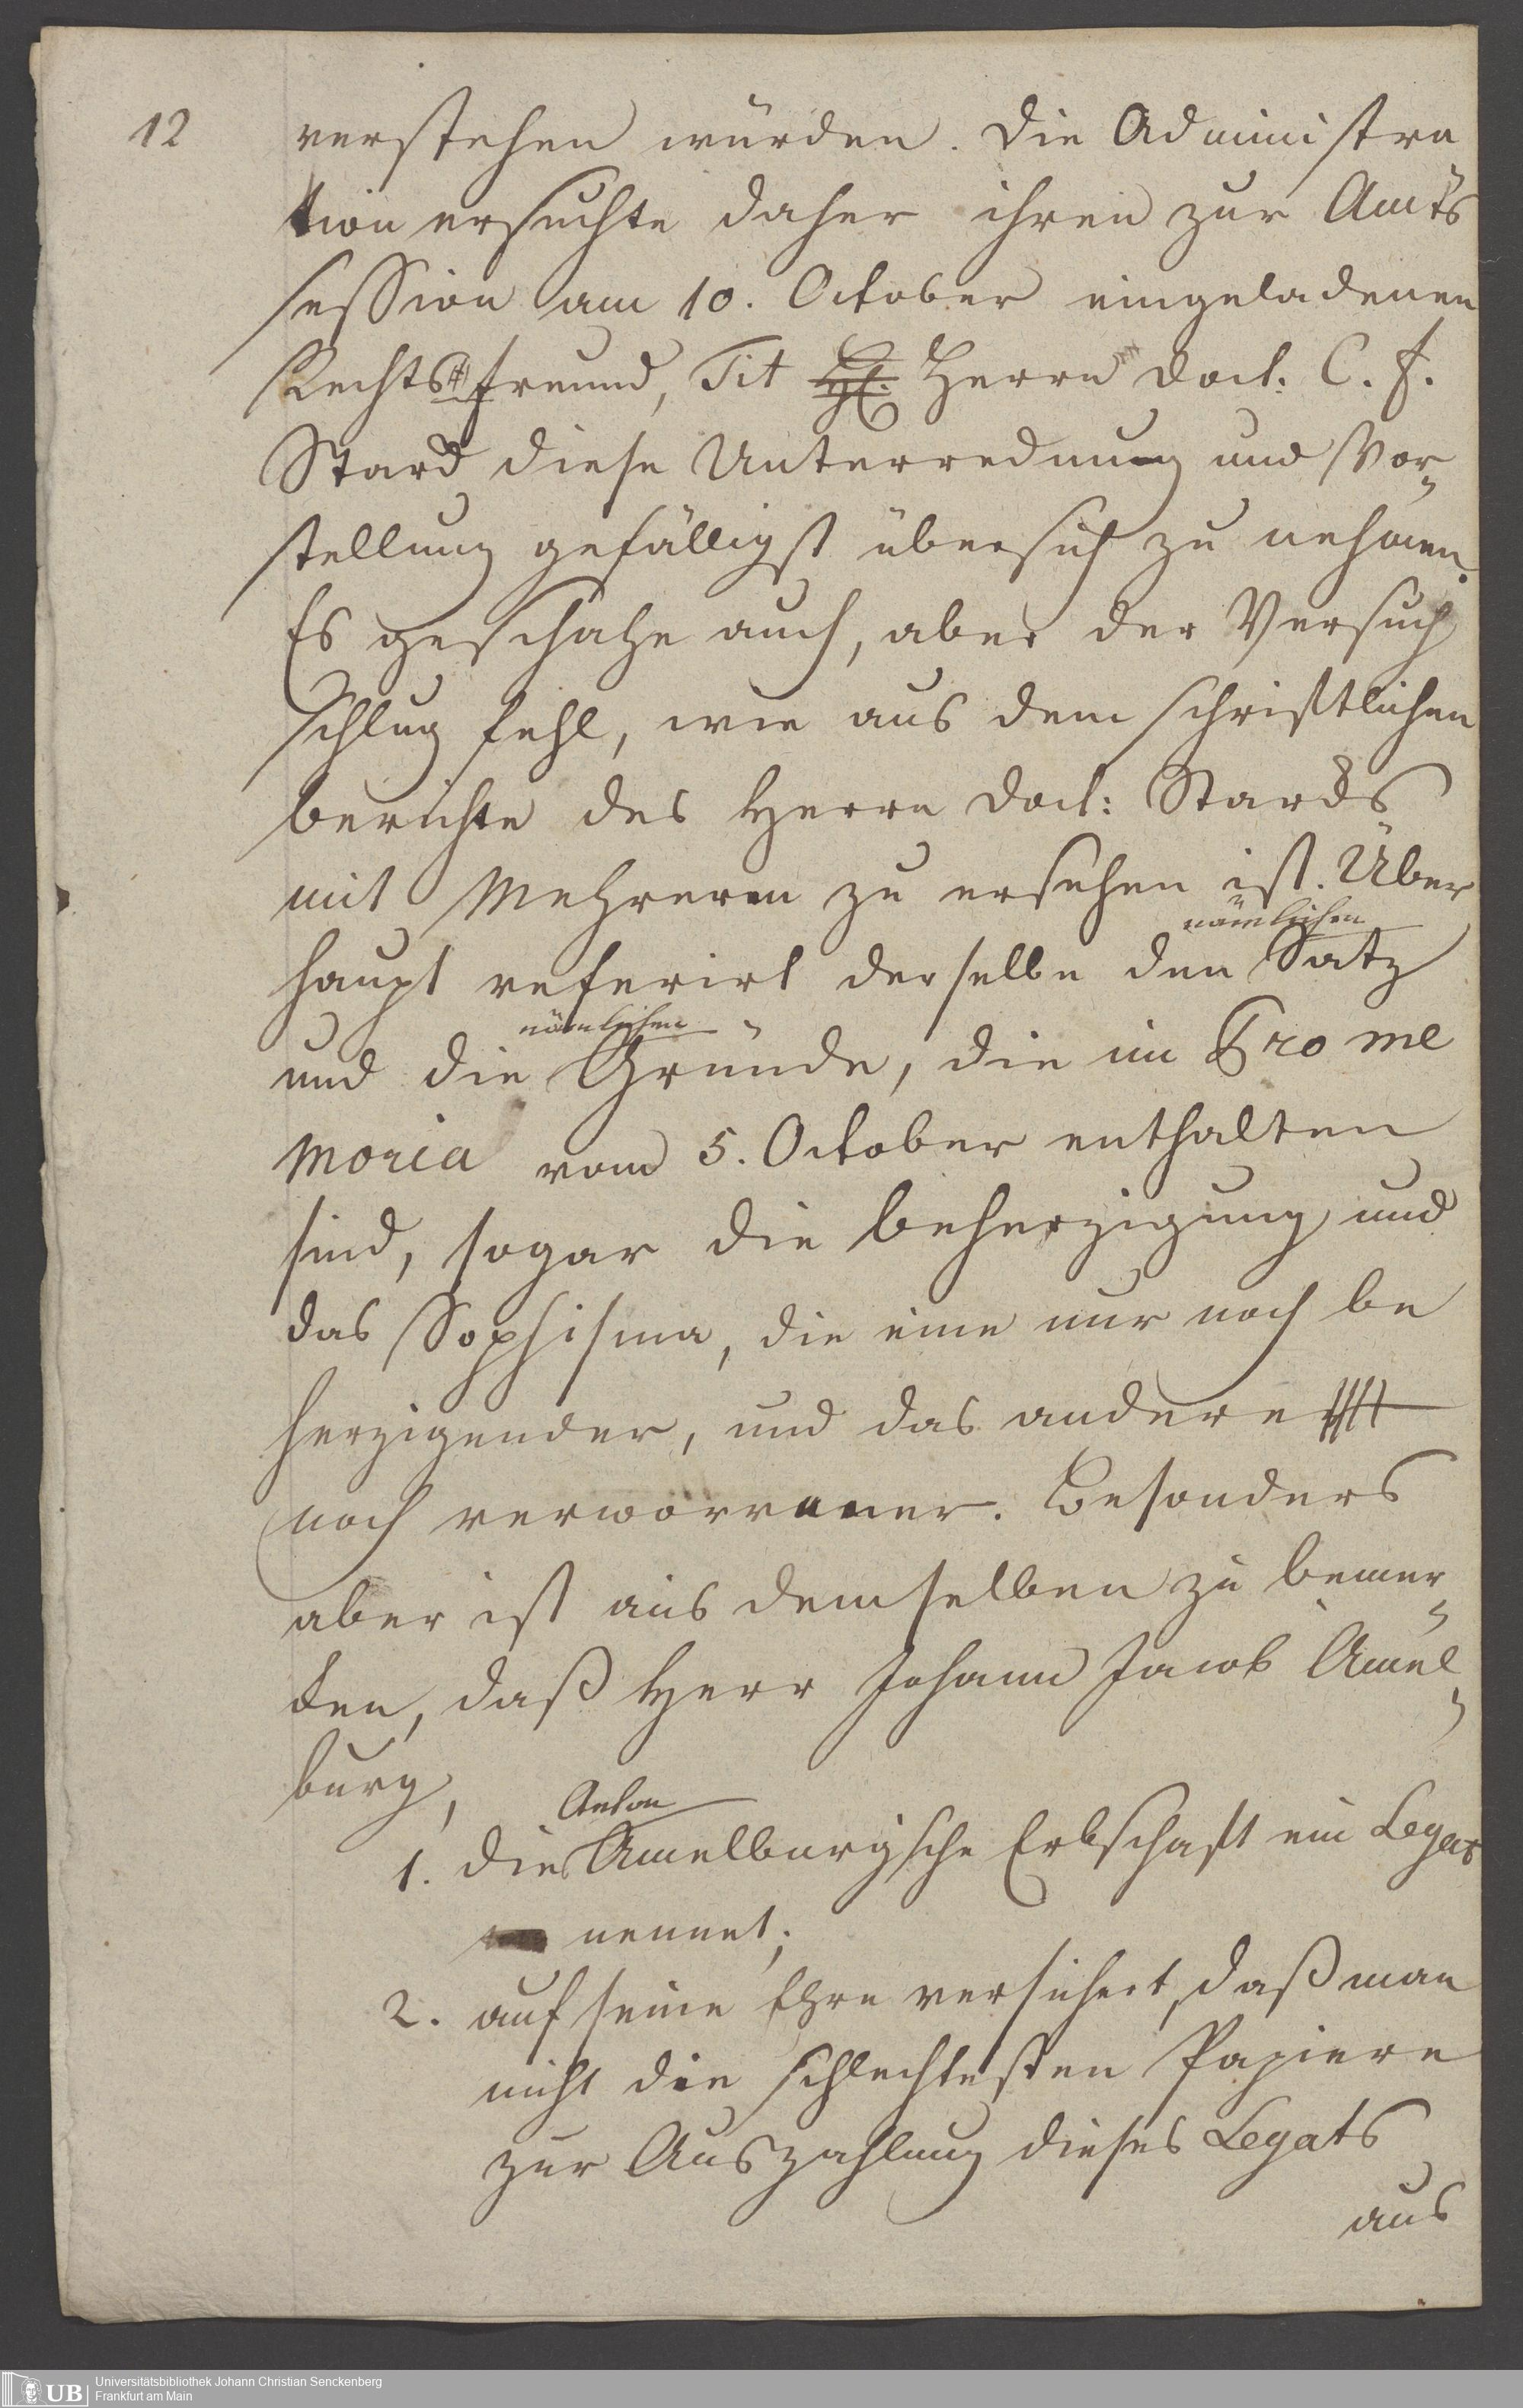 12
verstehen würden. Die Administra
tion ersuchte daher ihren zur Amts
session am 10. October eingeladenen
Rechtsfreund, Tit Herrn Doct. C. F.
Starck diese Unterredung und Vor-
stellung gefälligst über sich zu nehmen.
Es geschahe auch, aber der Versuch
schlug fehl, wie aus dem schriftlichen
Berichte des Herrn Doct: Starcks
mit Mehrerem zu ersehen ist. Über
nämlichen
haupt referirt derselbe den Satz
nämlichen
und die Gründe, die im Pro me
moria vom 5. October enthalten
sind, sogar die Beherzigung und
das Sophisma, die eine nur noch be
herzigender, und das andere
noch verworrener. Besonders
aber ist aus demselben zu bemer-
ken, daß Herr Johann Jacob Amel-
burg,
Anton
1. die Amelburgische Erbschaft ein Legat
nennet;
2. auf seine Ehre versichert, daß man
nicht die schlechtesten Papiere
zur Auszahlung dieses Legats
aus
UB
Universitätsbibliothek Johann Christian Senckenberg
Frankfurt am Main